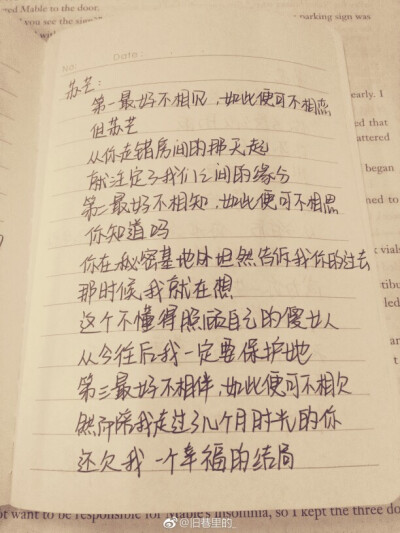 ed Mable to the door.
you see the sign?"
parking sign was
No:
Date
苏芒：
第一最好不相见，如此便可不相恋
但苏芒
从你走错房间的那天起
就注定了我们之间的缘分
第二最好不相知，如此便可不相思
你知道吗
你在秘密基地外坦然告诉我你的过去
那时候，我就在想
这个不懂得照顾自己的傻女人
从今往后我一定要保护她
第三最好不相伴，如此便可不相欠
然陪我走过了几个月时光的你
还欠我一个幸福的结局
early. I
d that
attered
began
ned to
vials
tibu
l der
not want to be responsible for Mable's insomnia, so I kept the three do
@旧巷里的_